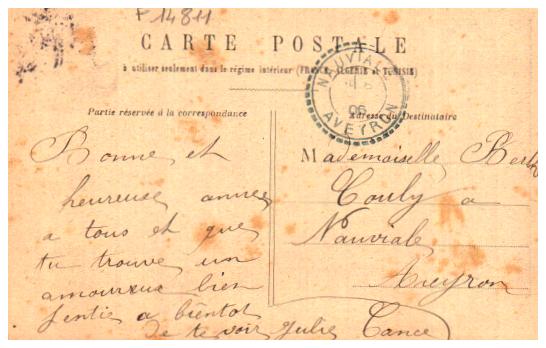 F 14811
CARTE POSTALE
à utiliser seulement dans le régime intérieur (FRANCE, ALGÉRIE et TUNISIE)
NAUVIALE
06
AVEYRON
Partie réservée à la correspondance
Adresse du Destinataire
Bonne et
heureuse année
a tous et que
tu trouve un
amoureux bien
gentie a bientot
de te voir Julie Cance
Mademoiselle Berth
Couly a
Nauviale
Aveyron